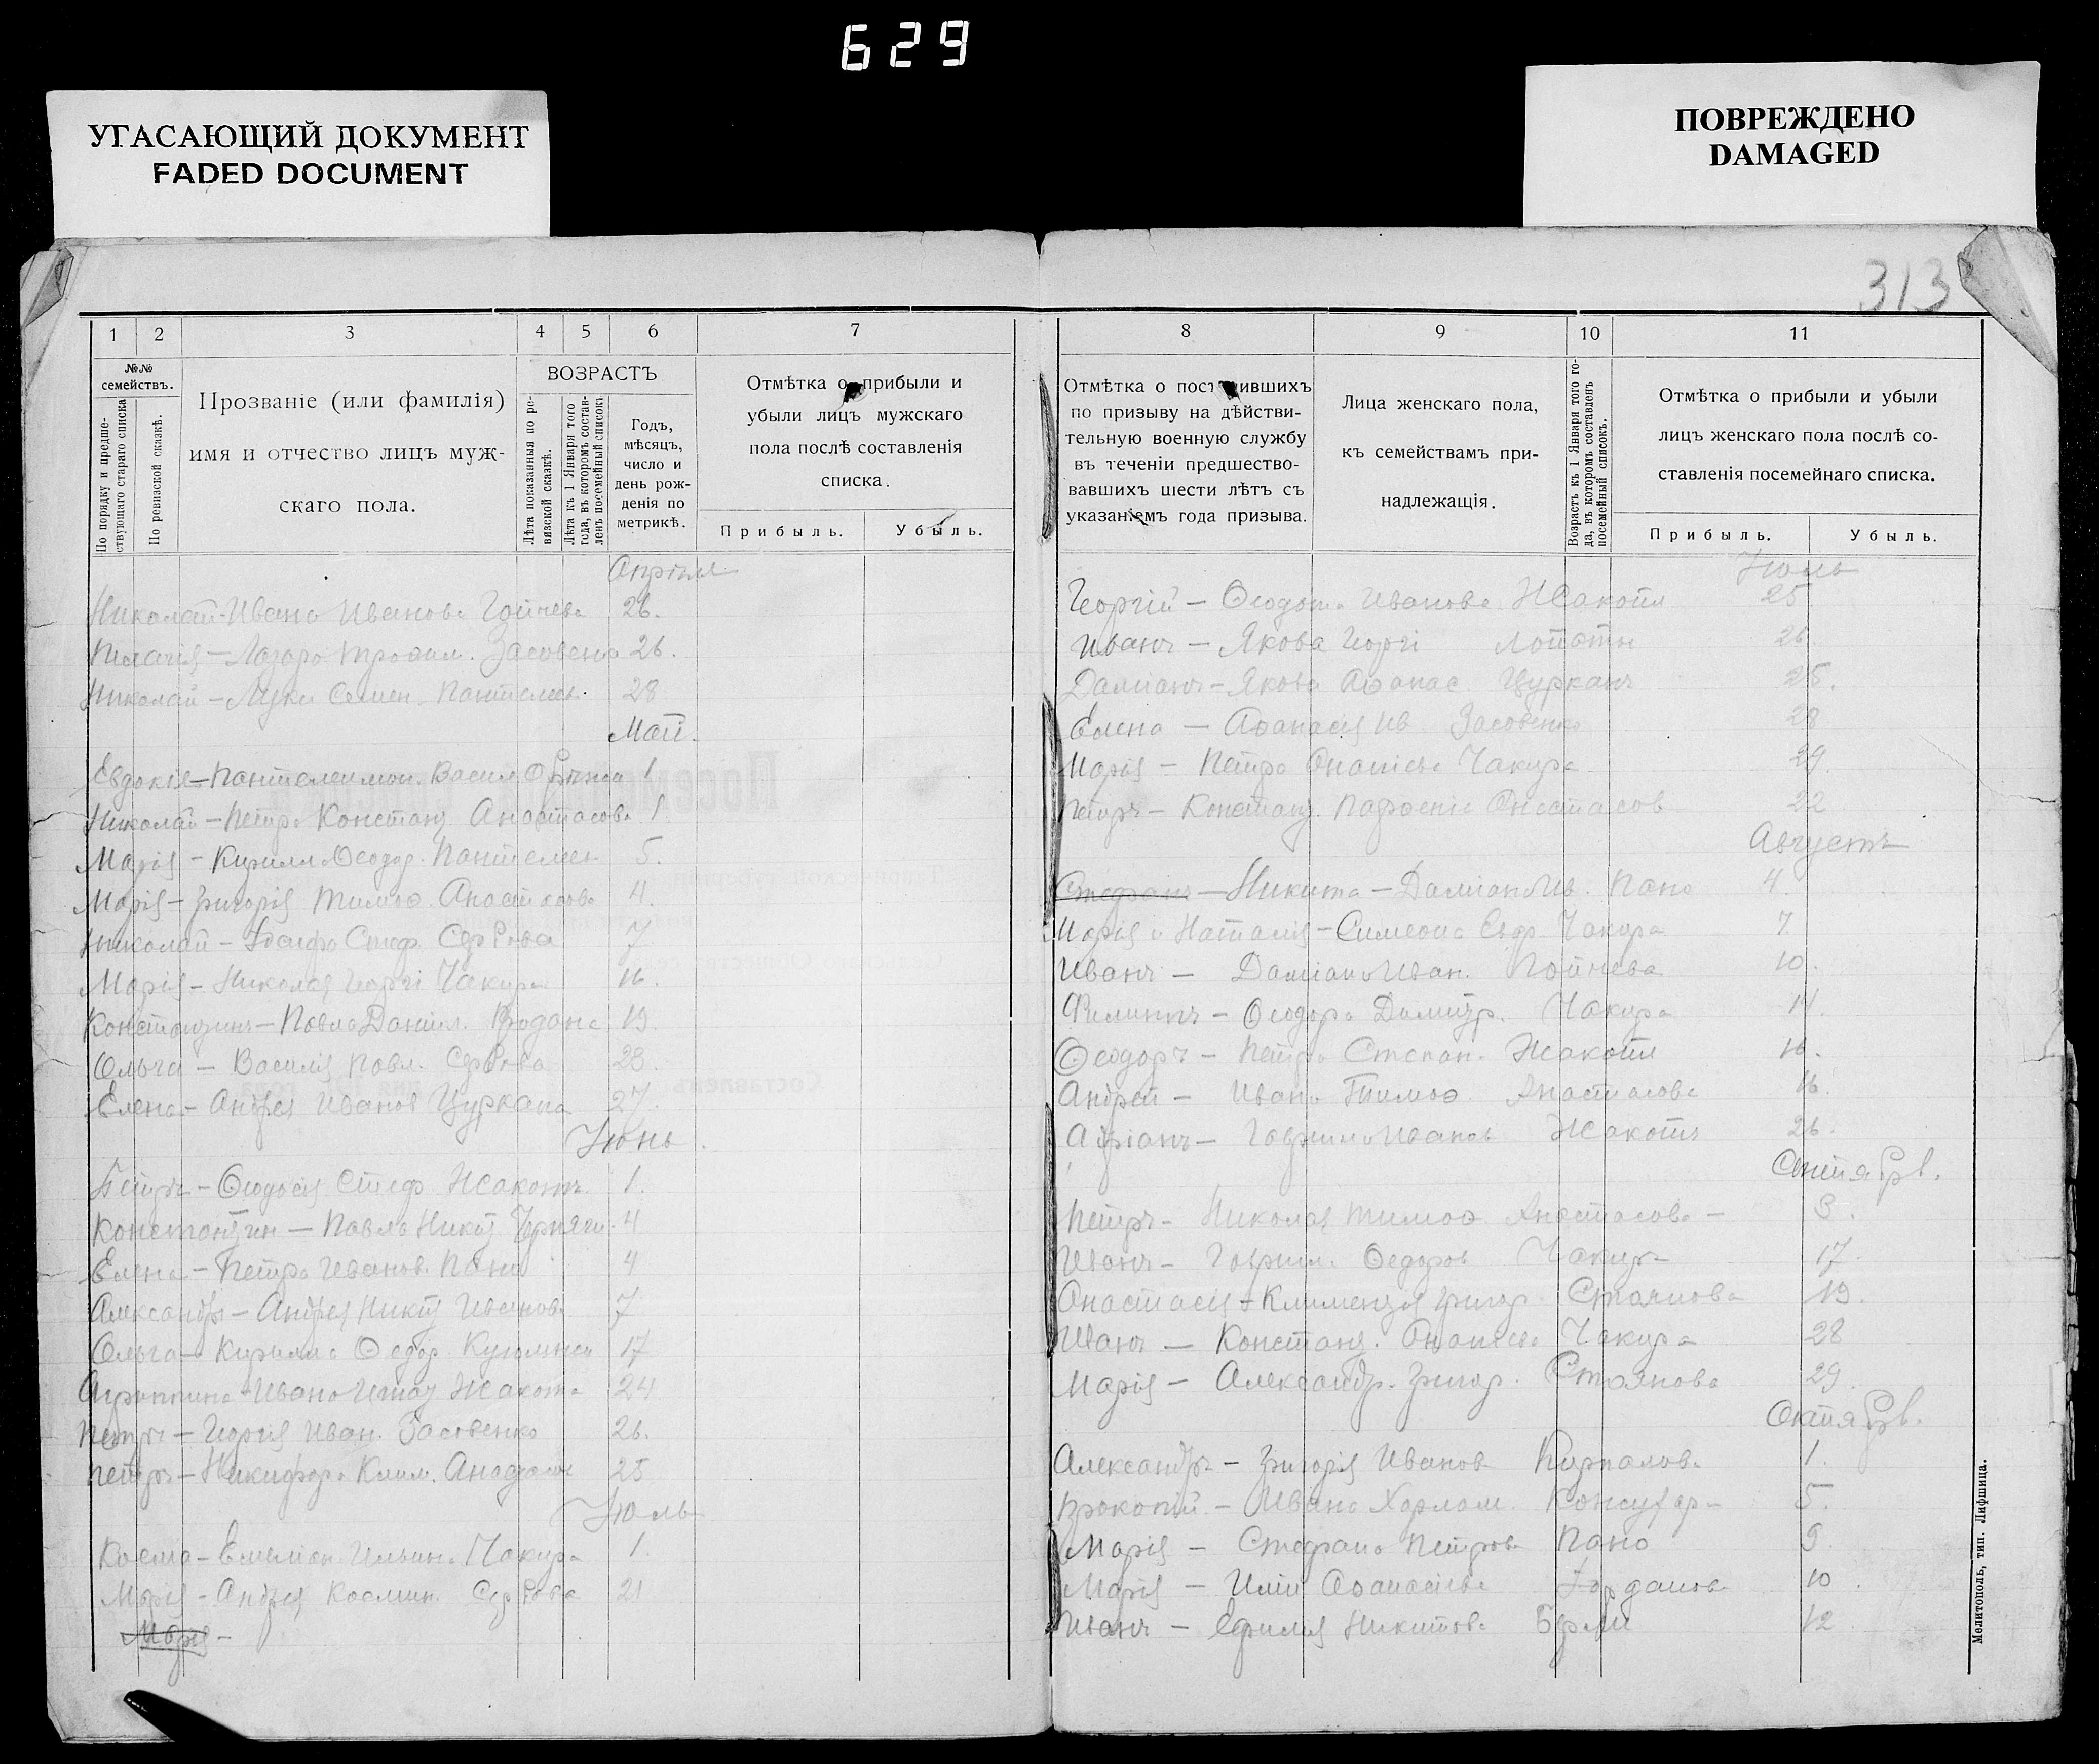 629
УГАСАЮЩИЙ ДОКУМЕНТ
FADED DOCUMENT
ПОВРЕЖДЕНО
DAMAGED
313
1 2 3 4 5 6 7
№№ семействъ.
По порядку и предшествующаго стараго списка
По ревизской сказкѣ.
Прозваніе (или фамилія)
имя и отчество лицъ муж-
скаго пола.
ВОЗРАСТЪ
Лѣта показанныя по ре-
визской сказкѣ.
Лѣта къ 1 Января того
года, въ которомъ состав-
ленъ посемейный списокъ
Годъ,
мѣсяцъ,
число и
день рож-
денія по
метрикѣ.
Отмѣтка о прибыли и
убыли лицъ мужскаго
пола послѣ составленія
списка.
Прибыль. Убыль.
Апрѣля
Николай - Ивана Иванова Гойнева 26.
Лазаря Засовенко 26.
Николай - Луки Семен. Пантелеев. 28
Май.
Евдокія - Пантелеимон. Васил. 1
Николай - Петра Констант. Анастасова 1
Марія - Кирилла Ѳеодор. Пантелеев 5.
Марія - Григорія Тимоѳ. Анастасова 4.
Николай - Стеф. Сербова 7
Марія - Николая Георгі Чакира 16.
Константинъ - Павла Данил. 19.
Ольга - Василія Павл. Сербова 23.
Елена - Андрея Иванов Цуркана 27.
Іюнь.
Петръ - Ѳеодосія Стеф Жакотъ 1.
Константин - Павла Никит 4
Елена - Петра Иванов. Пано 4
Александръ - Андрея Никит Иванова 7
Ольга - Кирилла Ѳедор. 17
Агриппина - Ивана Игнат Жакота 24
Петръ - Георгія Иван. Засовенко 26.
Петръ - Никифора Клим. 25
Іюль
Косма - Емеліан. Ильин. Чакира 1.
Марія - Андрея Космин. Сербова 21
Марія -
8 9 10 11
Отмѣтка о поступившихъ
по призыву на дѣйстви-
тельную военную службу
въ теченіи предшество-
вавшихъ шести лѣтъ съ
указаніемъ года призыва.
Лица женскаго пола,
къ семействамъ при-
надлежащія.
Возрастъ къ 1 Января того го-
да, въ которомъ составленъ
посемейный списокъ.
Отмѣтка о прибыли и убыли
лицъ женскаго пола послѣ со-
ставленія посемейнаго списка.
Прибыль. Убыль.
Іюль
Георгій - Ѳеодота Иванова Жакотя 25
Иванъ - Якова Георгі 26.
Даміанъ - Якова Аѳанас Цурканъ 25.
Елена - Аѳанасія Ив Засовенко 28
Марія - Петра Ананіева Чакира 29.
Петръ - Констант. Парѳеніе Анастасов 22
Августъ
Стефанъ - Никита - Даміана Ив. Пано 4
Марія и Наталія - Симеона Чакира 7.
Иванъ - Даміана Иван. Гойнева 10.
Филиппъ - Ѳеодора Димитр. Чакира 11.
Ѳеодоръ - Петра Степан. Жакотя 16.
Андрей - Ивана Тимоѳ. Анастасова 16.
Иванов Жакотъ 26.
Сентябрь.
Петръ - Николая Тимоѳ Анастасова - 3.
Иванъ - Гаврил. Ѳедоров Чакира 17.
Анастасія - Климентія Григор Стоянова 19.
Иванъ - Констант. Ананіева Чакира 28
Марія - Александр. Григор. Стоянова 29.
Октябрь.
Александръ - Григорія Иванов 1.
Прокопій - Ивана Харлам. 5.
Марія - Стефана Петрова Пано 9
Марія - Иліи Аѳанасіева 10
Иванъ - Ефимія Никитова 12
Мелитополь, тип. Лифшица.